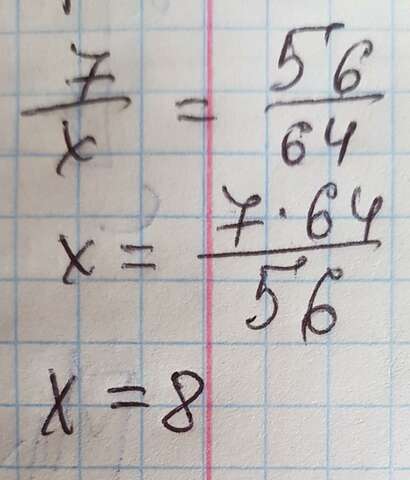 7/x = 56/64
x = 7·64/56
x = 8